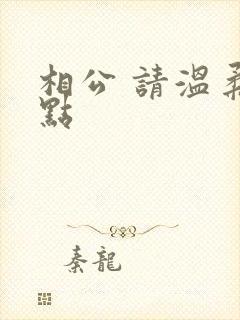 相公 請溫柔
點
秦龍